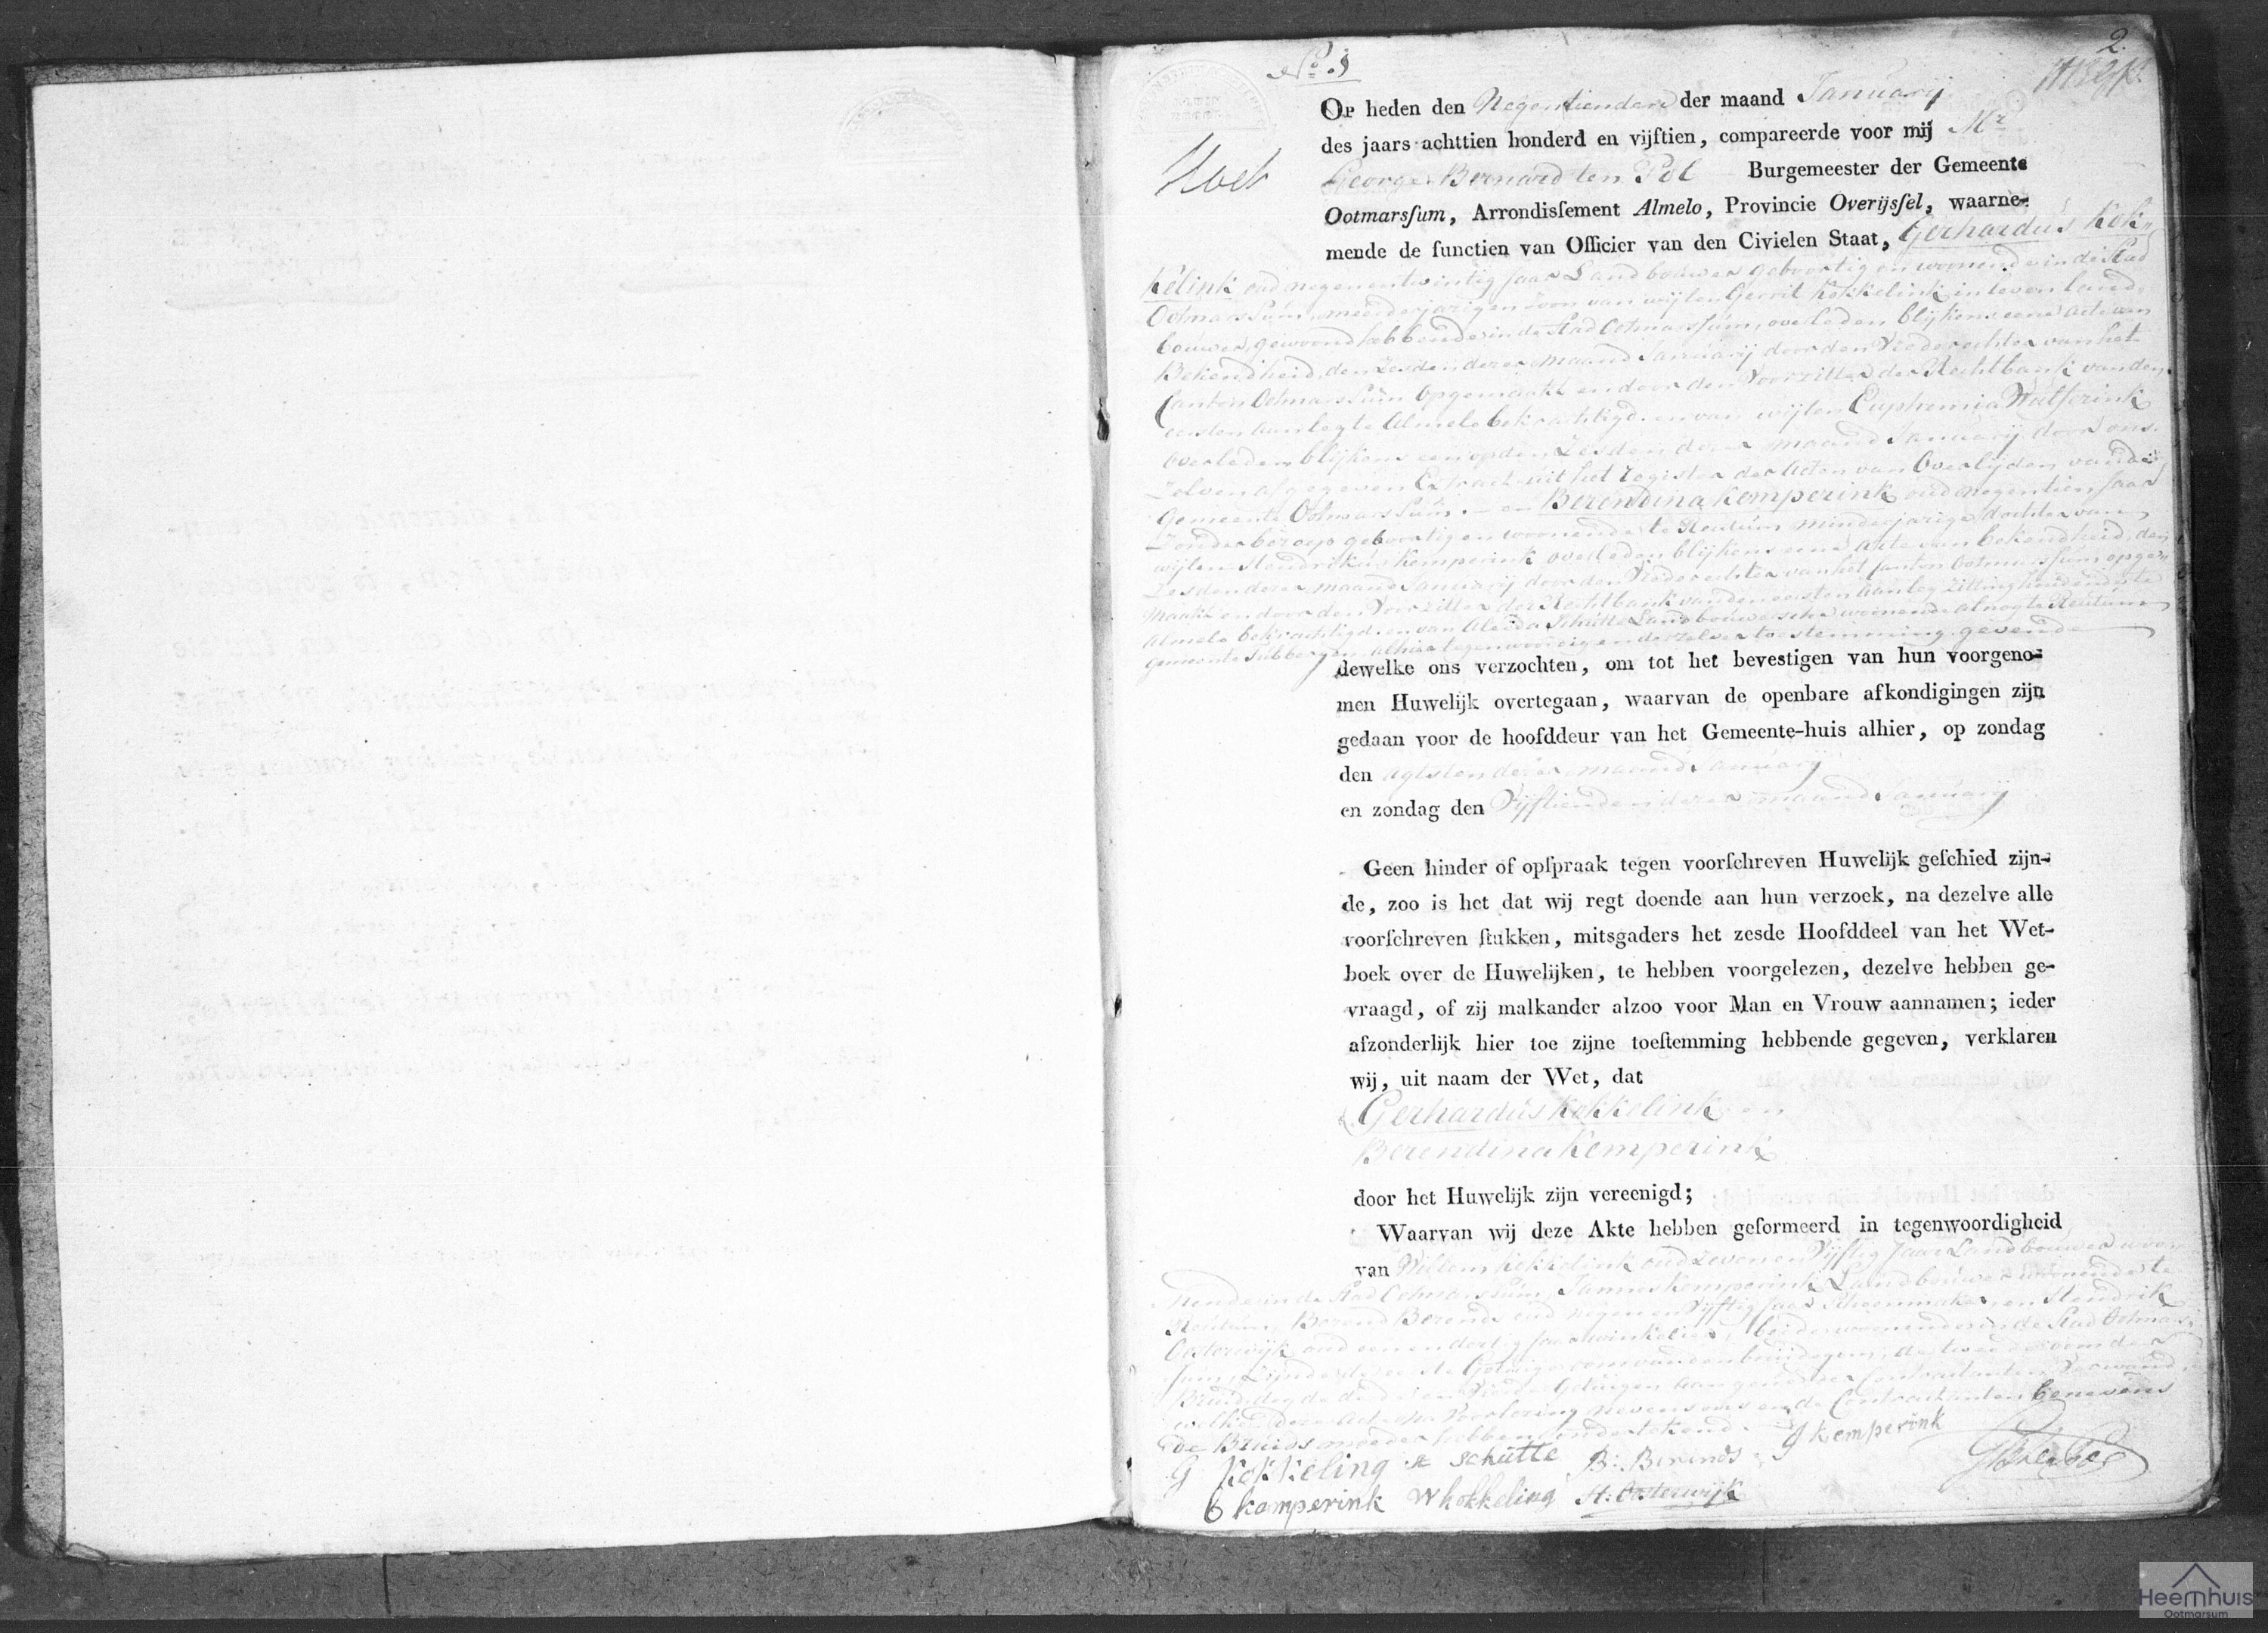 2.
No. 1
Op heden den Negentienden der maand Januarij
des jaars achttien honderd en vijftien, compareerde voor mij Mr
George Bernard ten Pol Burgemeester der Gemeente
Ootmarsſum, Arrondisſement Almelo, Provincie Overijsſel, waarne-
mende de functien van Officier van den Civielen Staat, Gerhardus Kok-
kelink oud negenentwintig Jaar Landbouwer geboortig en woonende in de Stad
Ootmarssum, meerderjarigen Zoon van wijlen Gerrit Kokkelink in leven land-
bouwer, gewoond hebbende in de Stad Ootmarssum, overleden blijkens eene acte van
Bekendheid, den Zesden dezer maand Januarij door den Vrederechter van het
Canton Ootmarssum opgemaakt en door den Voorzitter der Rechtbank van den
eersten aanleg te Almelo bekrachtigd en van wijlen Euphemia
overleden blijkens een op den Zesden dezer maand Januarij door ons
Zelven afgegeven Extract uit het register der Acten van Overlijden van de
Gemeente Ootmarssum. en Berendina Kemperink oud negentien Jaar
Zonder beroep geboortig en woonende te Reutum minderjarige dochter van
wijlen Hendrikus Kemperink overleden blijkens eene Akte van bekendheid, den
Zesden dezer maand Januarij door den Vrederechter van het Canton Ootmarssum opge-
maakt en door den Voorzitter der Rechtbank van den eersten Aanleg Zitting houdende te
Almelo bekrachtigd en van Aleida Schutte Landbouwersche woonende al nog te Reutum
Gemeente Tubbergen alhier tegenwoordig en derzelver toestemming gevende
dewelke ons verzochten, om tot het bevestigen van hun voorgeno-
men Huwelijk overtegaan, waarvan de openbare afkondigingen zijn
gedaan voor de hoofddeur van het Gemeente-huis alhier, op zondag
den agtsten dezer maand Januarij
en zondag den Vijftienden dezer maand Januarij
Geen hinder of opſpraak tegen voorſchreven Huwelijk geſchied zijn-
de, zoo is het dat wij regt doende aan hun verzoek, na dezelve alle
voorſchreven ſtukken, mitsgaders het zesde Hoofddeel van het Wet-
boek over de Huwelijken, te hebben voorgelezen, dezelve hebben ge-
vraagd, of zij malkander alzoo voor Man en Vrouw aannamen; ieder
afzonderlijk hier toe zijne toeſtemming hebbende gegeven, verklaren
wij, uit naam der Wet, dat
Gerhardus Kokkelink en
Berendina Kemperink
door het Huwelijk zijn vereenigd;
Waarvan wij deze Akte hebben geformeerd in tegenwoordigheid
van Willem Kokkelink oud Zevenen Vijftig Jaar Landbouwer woo-
nende in de Stad Ootmarssum, Jannes Kemperink Landbouwer woonende te
Reutum, Berend Berends oud negenen Vijftig Jaar Schoenmaker, en Hendrik
Oosterwijk oud eenendertig Jaar winkelier, beide woonende in de Stad Ootmars-
sum, Zijnde de eerste Getuige oom van den bruidegom, de tweede oom der
Bruid, dog de derde en Vierde Getuigen aan gemelde Contractanten
welke deze acte na Voorlezing nevens ons en de Contractanten benevens
de Bruids moeder hebben ondertekend.
G Kokkeling A schutte B: Berends J kemperink
B kamperink W kokkeling H: Oosterwijk GB ten Pol
Heemhuis
Ootmarsum